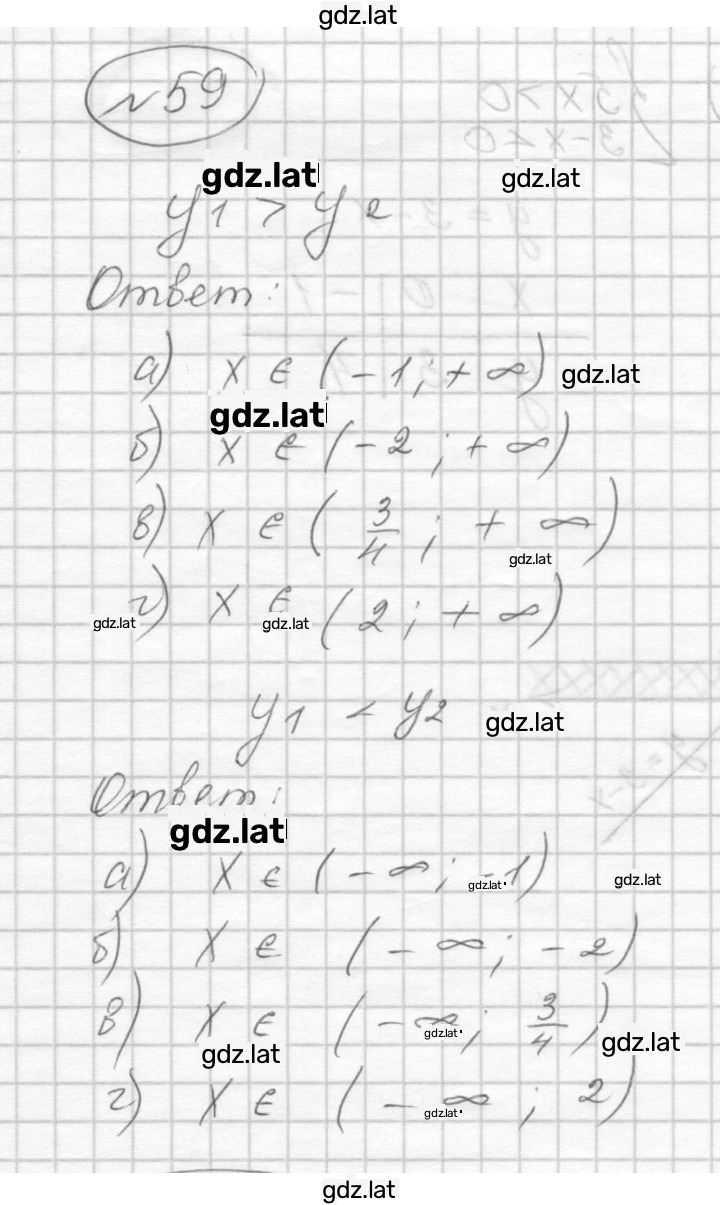 gdz.lat
№59
gdz.lat gdz.lat
y1 > y2
Ответ:
а) x ∈ (-1; +∞) gdz.lat
gdz.lat
б) x ∈ (-2; +∞)
в) x ∈ (3/4; +∞)
gdz.lat
г) x ∈ (2; +∞)
gdz.lat gdz.lat
y1 < y2 gdz.lat
Ответ:
gdz.lat
а) x ∈ (-∞; -1)
gdz.lat gdz.lat
б) x ∈ (-∞; -2)
в) x ∈ (-∞; 3/4)
gdz.lat gdz.lat gdz.lat
г) x ∈ (-∞; 2)
gdz.lat
gdz.lat